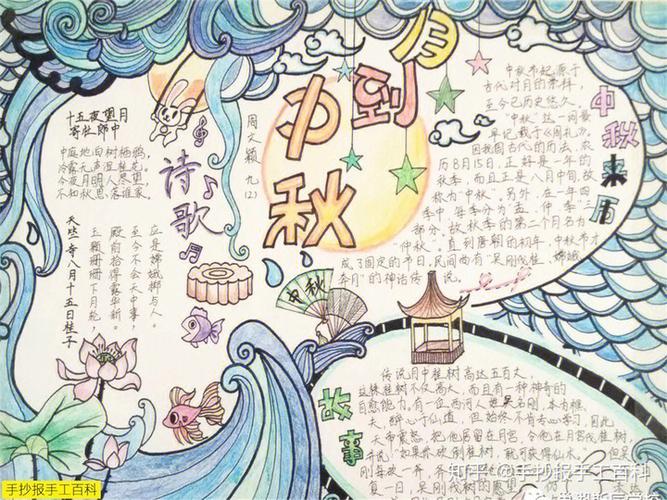 月到中秋
十五夜望月
寄杜郎中
中庭地白树栖鸦，
冷露无声湿桂花。
今夜月明人尽望，
不知秋思落谁家
诗歌
周文颖
九(2)
天竺寺八月十五日桂子
玉颗珊珊下月轮，
殿前拾得露华新。
至今不会天中事，
应是嫦娥掷与人。
中秋
中秋来历
中秋节起源于
古代对月的崇拜，
至今已历史悠久。
"中秋"这一词最
早记载于《周礼》。
因我国古代的历法，农
历8月15日，正好是一年的
秋季，而且正是八月中间，故
称为"中秋"。另外，在一年四
季中，每季分为"孟、仲、季"三
部分，故秋季的第二个月名为
"仲秋"。直到唐朝的初年，中秋节才
成了固定的节日，民间尚有"吴刚伐桂，嫦娥
奔月"的神话传说。
故事
传说月中桂树高达五百丈，
这株桂树不仅高大，而且有一种神奇的
自愈能力，有一位西河人姓吴名刚，本为樵
夫，醉心于仙道，但始终不肯专心学习，因此
天帝震怒，把他居留在月宫，令他在月宫伐桂树，
并说："如果你砍倒桂树，就可获得仙术。"但吴
手抄报手工百科
知乎 @手抄报手工百科